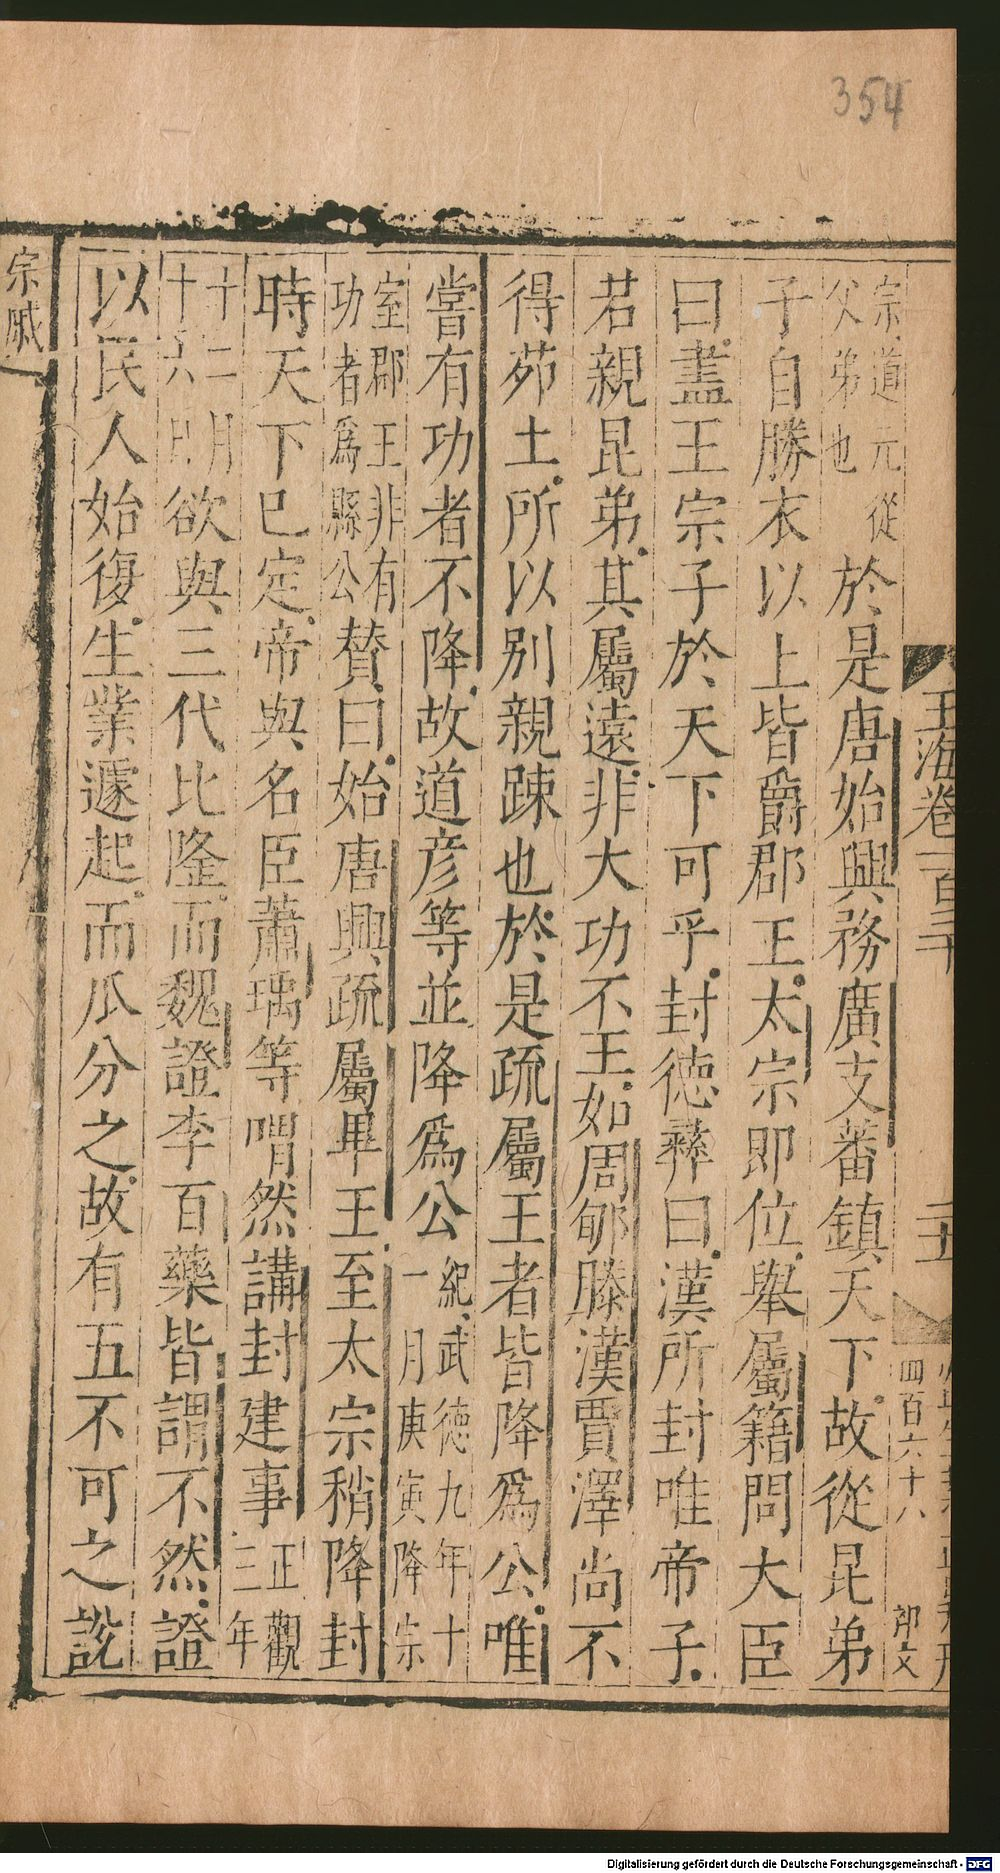 354
玉海卷一百三十
二十五
四百六十八
宗道元從
父弟也
於是唐始興務廣支蕃鎮天下故從昆弟
子自勝衣以上皆爵郡王太宗即位舉屬籍問大臣
曰盡王宗子於天下可乎封德彝曰漢所封唯帝子
若親昆弟其屬遠非大功不王如周郇滕漢賈澤尚不
得茆土所以別親踈也於是疏屬王者皆降爲公唯
嘗有功者不降故道彦等並降爲公
紀武德九年十
一月庚寅降宗
室郡王非有
功者爲縣公
贊曰始唐興疏屬畢王至太宗稍降封
時天下已定帝與名臣蕭瑀等喟然講封建事
正觀
三年
十二月
十六日
欲與三代比隆而魏證李百藥皆謂不然證
以民人始復生業遽起而瓜分之故有五不可之說
宗戚
Digitalisierung gefördert durch die Deutsche Forschungsgemeinschaft - DFG